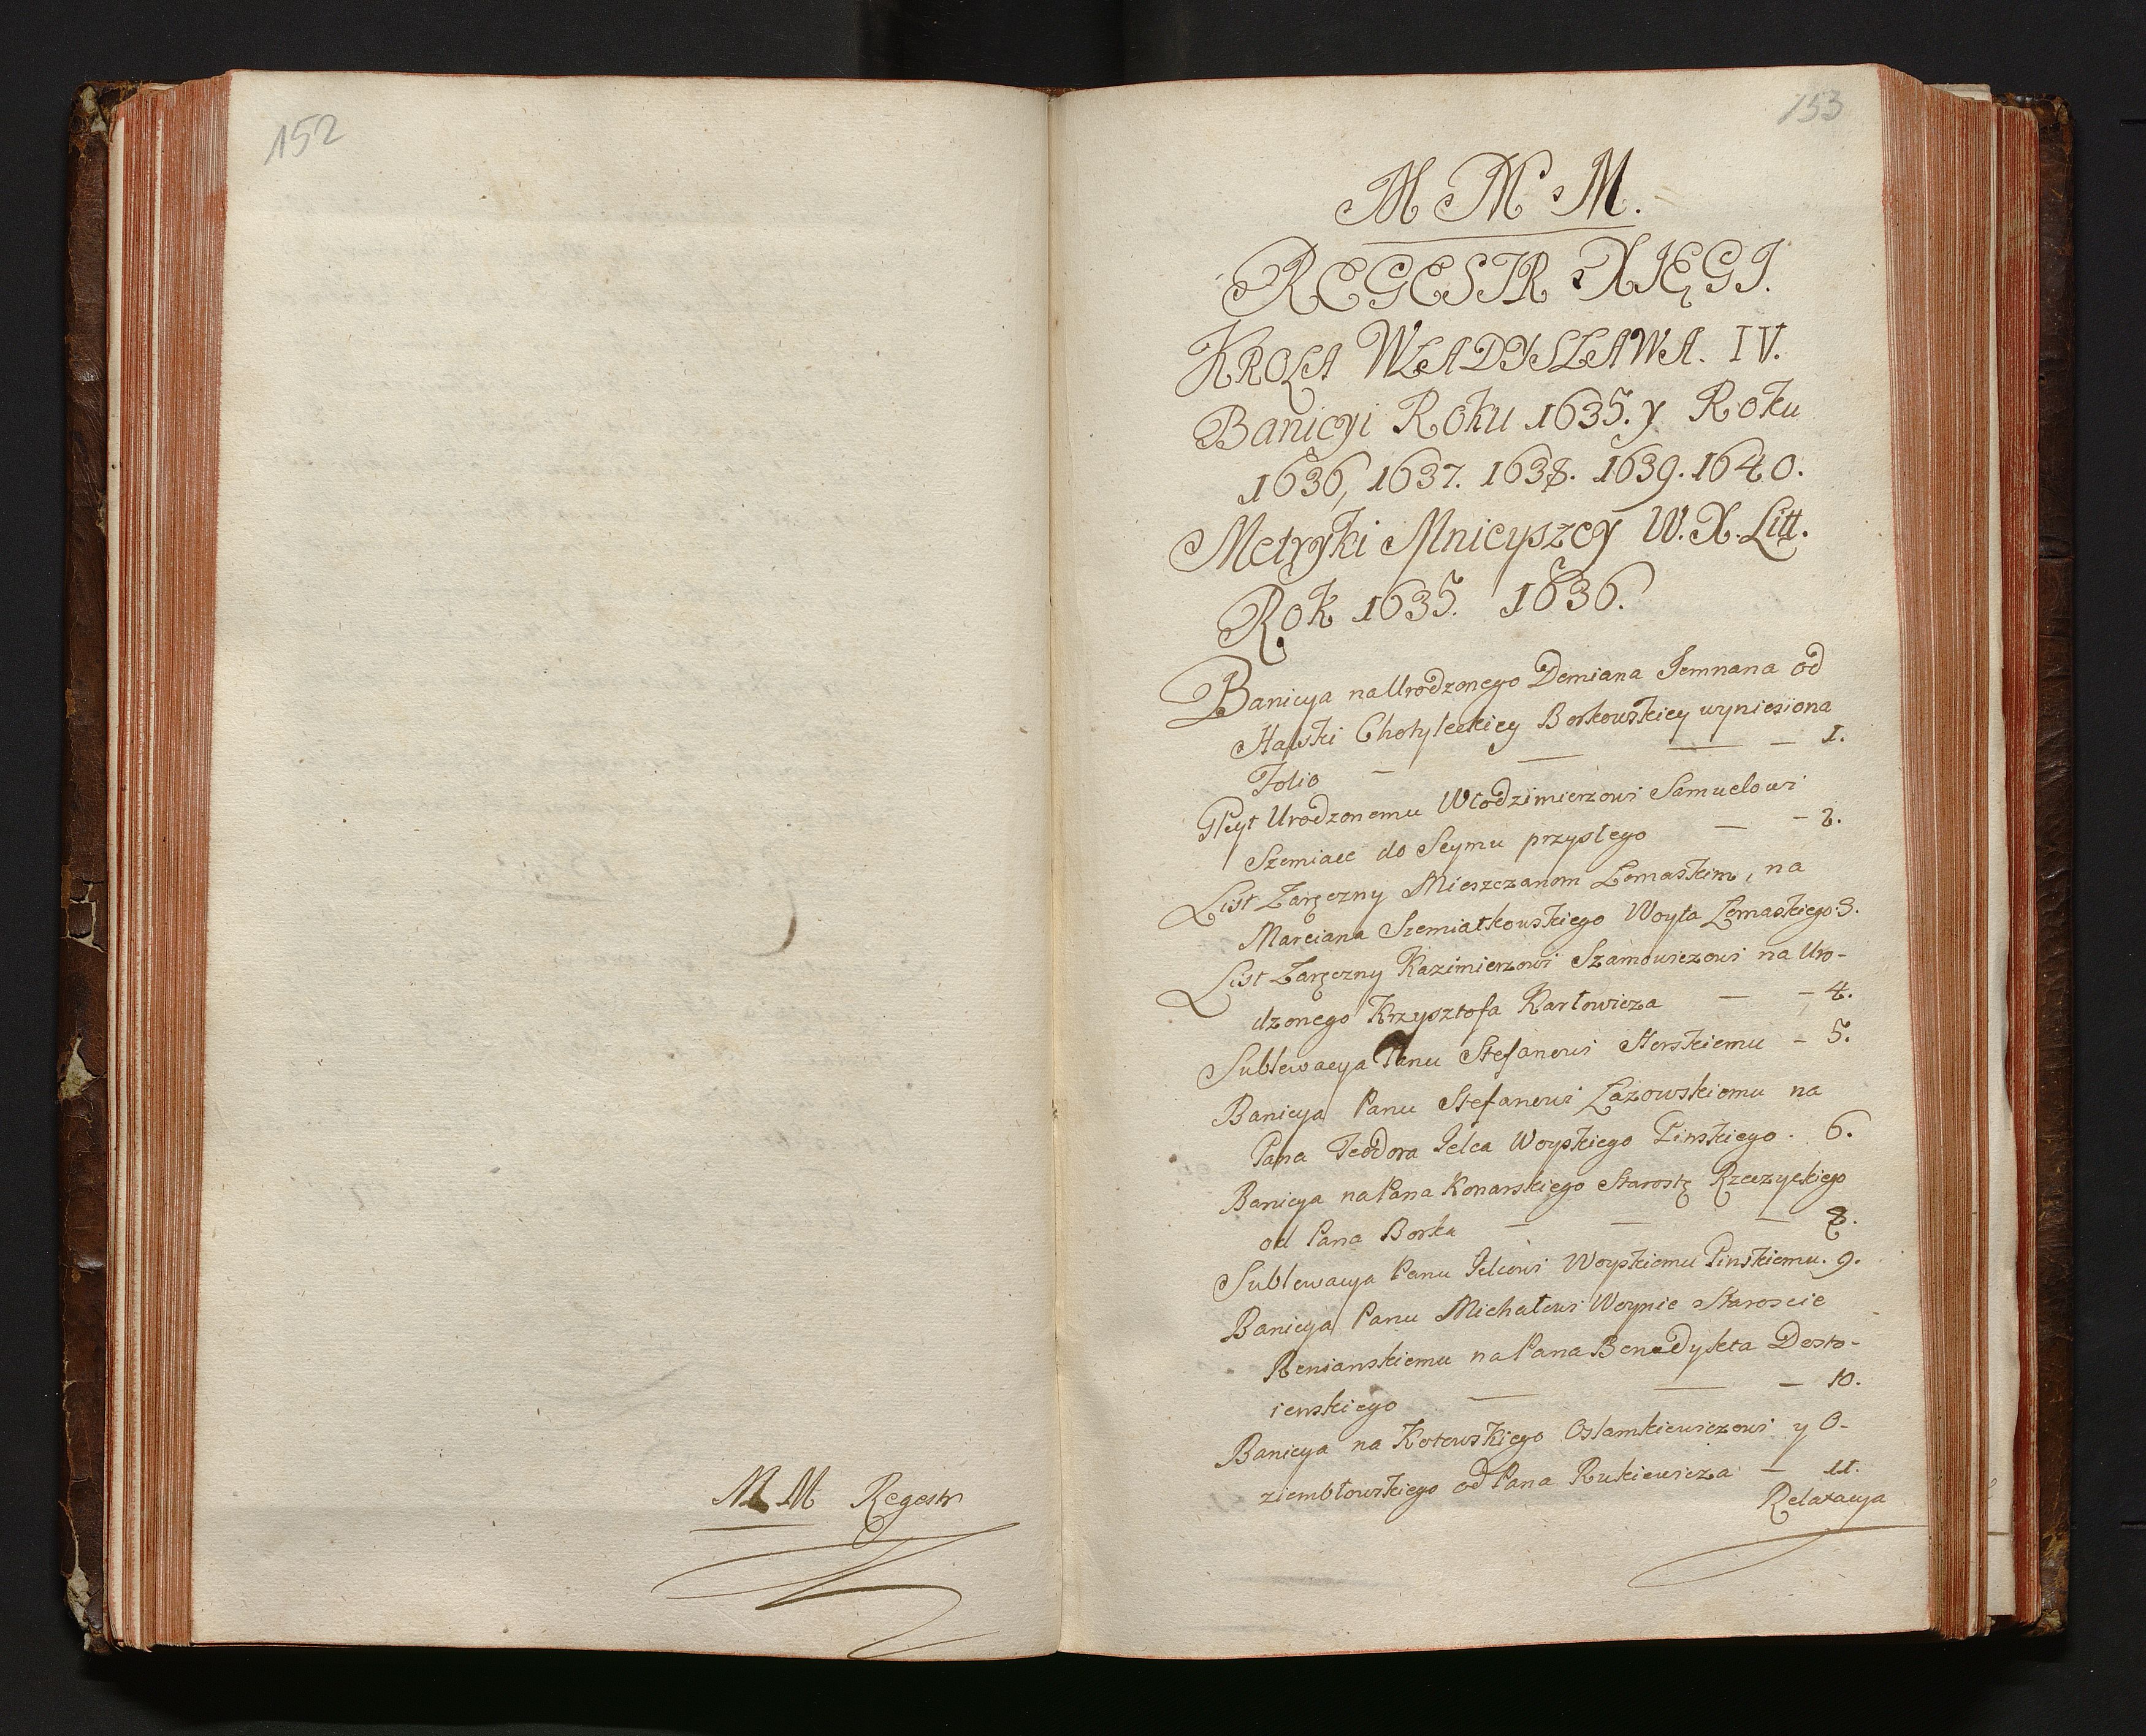 152
M M Regestr
153
M M M.
REGESTR XIĘGI.
KROLA WŁADYSŁAWA. IV.
Banicyi Roku 1635. y Roku
1636, 1637. 1638. 1639. 1640.
Metryki Mnieyszey W. X. Litt.
Rok 1635. 1636.
Banicya na Urodzonego Demiana Jemnana od
Halski Chotyleckiey Borkowskiey wyniesiona
Folio — — — — 1.
Gleyt Urodzonemu Włodzimierzowi Samuelowi
Szemiace do Seymu przyszłego — — 2.
List Zaręczny Mieszczanom Łomaskim, na
Marciana Szemiatkowskiego Woyta Łomaskiego. 3.
List Zaręczny Kazimierzowi Szamowiczowi na Uro-
dzonego Krzysztofa Karłowicza — — 4.
Sublewacya Panu Stefanowi Horskiemu — 5.
Banicya Panu Stefanowi Łazowskiemu na
Pana Teodora Jelca Woyskiego Pinskiego. 6.
Banicya na Pana Konarskiego Starostę Rzeczyckiego
od Pana Borka — — — 8.
Sublewacya Panu Jelcowi Woyskiemu Pinskiemu. 9.
Banicya Panu Michałowi Woynie Staroscie
na Pana Benedykta Dosto-
ienskiego — — — 10.
Banicya na Kotowskiego Oslamkiewiczowi y O-
ziembłowskiego od Pana Rukiewicza — 11.
Relaxacya